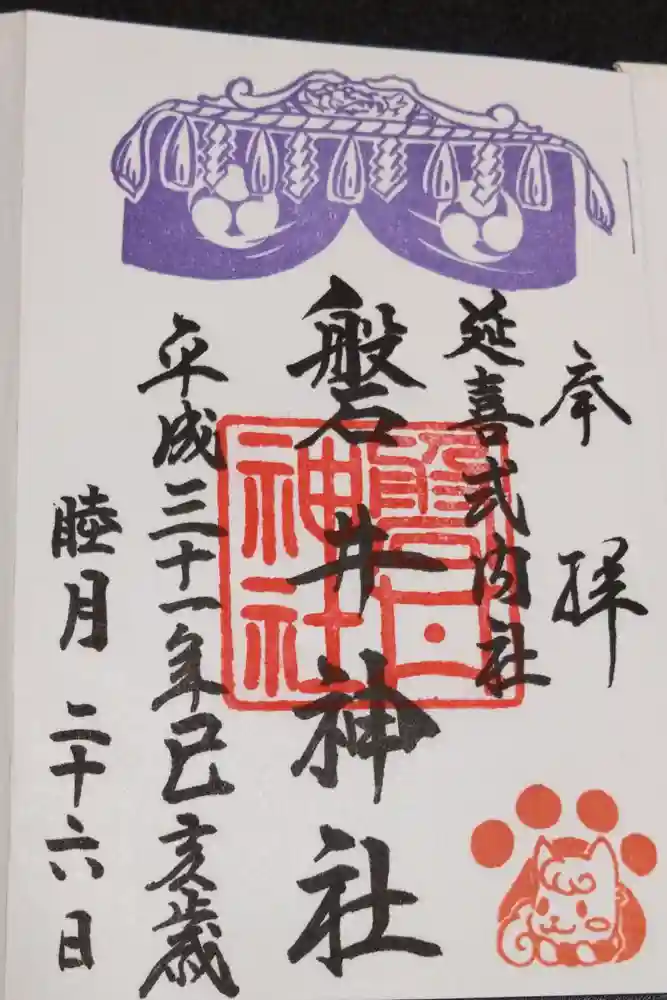 奉拝
延喜式内社
磐井神社
平成三十一年己亥歳
睦月二十六日
磐井神社